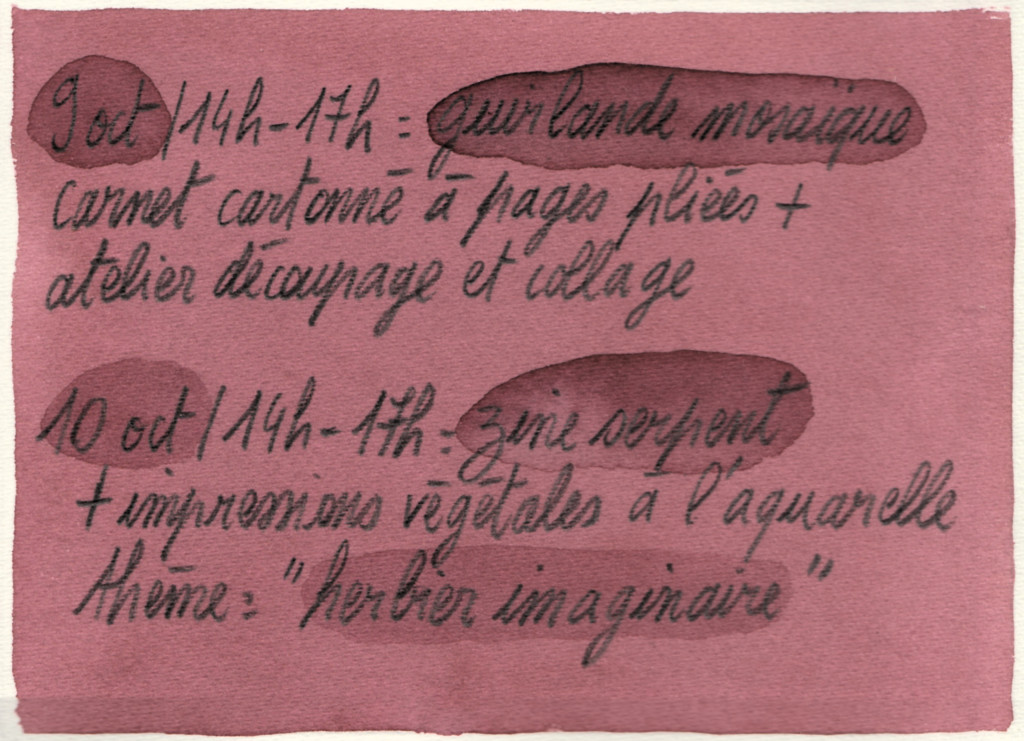 9 oct / 14h - 17h : guirlande mosaïque
carnet cartonné à pages pliées +
atelier découpage et collage
10 oct / 14h - 17h : zine serpent
+ impressions végétales à l'aquarelle
thème : "herbier imaginaire"